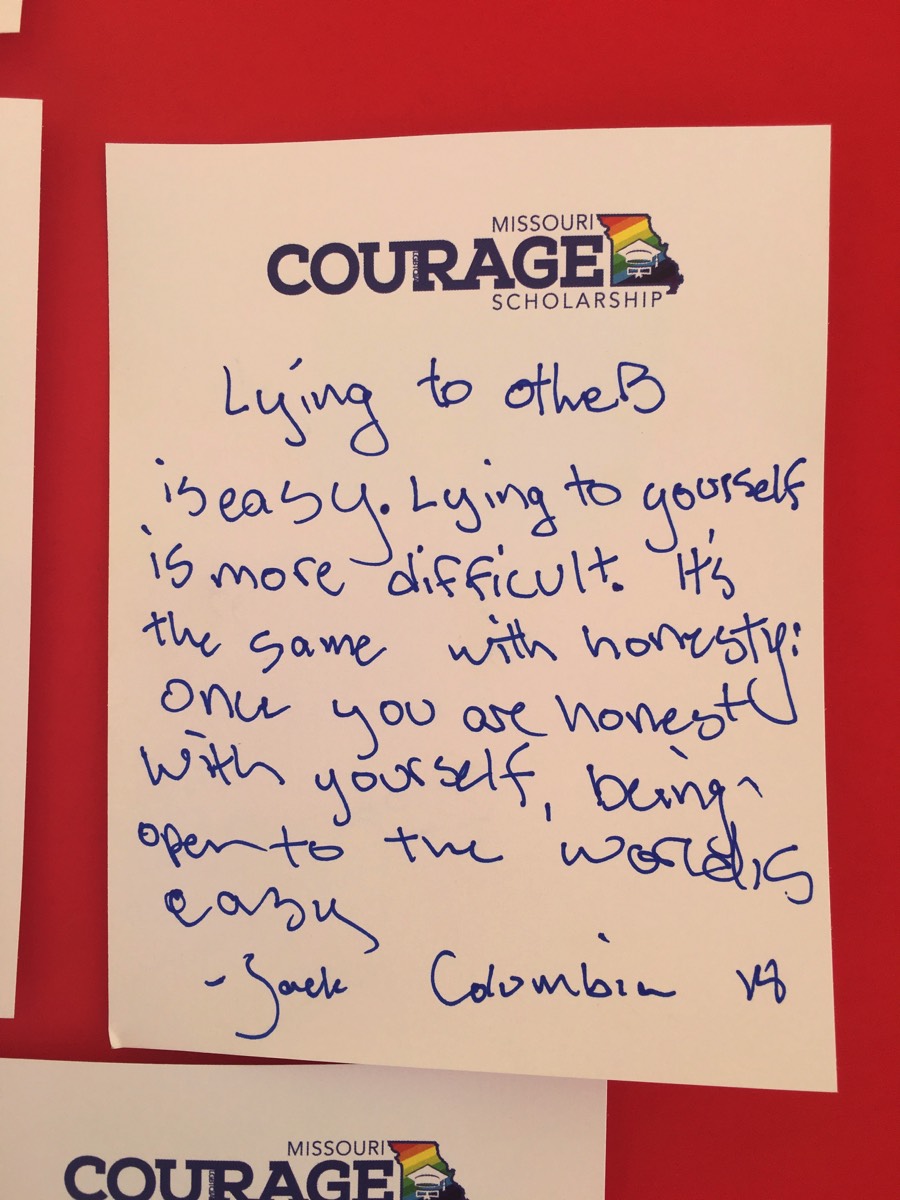 MISSOURI
COURAGE
SCHOLARSHIP
Lying to others
is easy. Lying to yourself
is more difficult. It's
the same with honesty:
Once you are honest
with yourself, being
open to the world is
easy
- Jack Columbia 18
MISSOURI
COURAGE